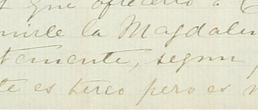 que ofrecerlo a
unirle la Magdalen
temente, segun
te es terco pero es